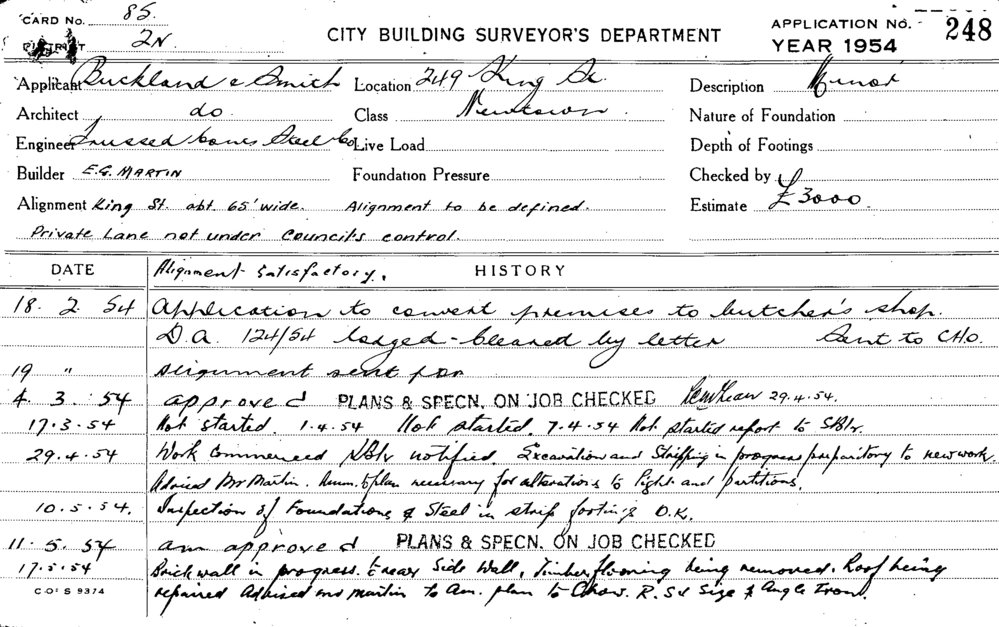 CARD No. 85. CITY BUILDING SURVEYOR'S DEPARTMENT APPLICATION No. 248
DISTRICT 2N YEAR 1954
Applicant Buckland & Smith Location 249 King St. Description Minor
Architect do Class Newtown Nature of Foundation
Engineer Trussed Steel Co Live Load Depth of Footings
Builder E.G. MARTIN Foundation Pressure Checked by
Alignment King St. abt. 65' wide. Alignment to be defined. Estimate £3000
Private Lane not under Council's control.
DATE Alignment Satisfactory. HISTORY
18. 2. 54 Application to convert premises to butcher's shop.
D.A. 124/54 lodged - cleared by letter Sent to C.H.O.
19 " alignment sent for
4. 3. 54 approved PLANS & SPECN. ON JOB CHECKED 29.4.54.
17.3.54 Not started. 1.4.54 Not started. 7.4.54 Not started report to
29.4.54 Work Commenced notified. Excavation and Stripping in progress preparitory to new work.
Advised Mr Martin. plan necessary for alterations to light and partitions.
10.5.54. Inspection of Foundations & Steel in strip footings O.K.
11. 5. 54 am approved PLANS & SPECN. ON JOB CHECKED
17.5.54 Brick wall in progress. Side Wall, Timber flooring being removed. Roof being
C.O! S 9374 repaired Advised Mr Martin to Am. plan to Show. R.S.J Size & Angle Iron.